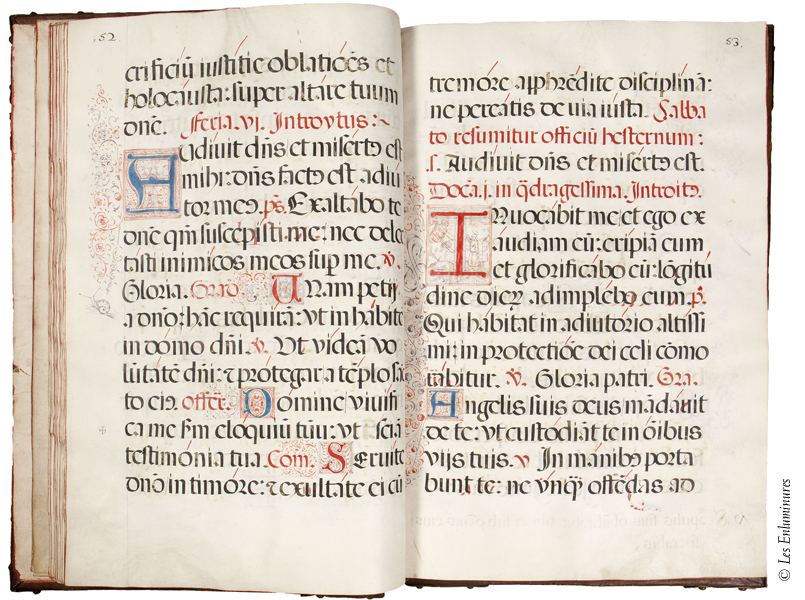 52.
crificiū iustitie oblatiões et
holocausta: super altare tuum
dnē. Feria. vi. Introytus:
Audiuit dñs et misertꝰ est
mihi: dñs factꝰ est adiu
tor meꝰ. ps. Exaltabo te
dnē qm̄ suscepisti me: nec dele
tasti inimicos meos sup me. v.
Gloria. Grad. Unam petij
a dnō: hāc requirā: vt in habitē
in domo dñi. v. Vt videā vo
lūtatē dñi: ⁊ protegar a tēplo sā
to eiꝰ. offer. Domine viuifi
ca me sm̄ eloquiū tuū: vt sciā
testimonia tua. Com. Seruite
dnō in timore: ⁊ exultate ei cū
53.
tremore apprehēdite disciplinā:
ne pereatis de via iusta. Sabba
to resumitur officiū hesternum:
s. Audiuit dñs et misertꝰ est.
Doca. j. in qdragessima. Introitꝰ.
INuocabit me, et ego ex
audiam eū: eripiā eum
et glorificabo eū: lōgitu
dine dieꝝ adimplebo eum. p.
Qui habitat in adiutorio altissi
mi: in protectiōe dei celi cōmo
rabitur. v. Gloria patri. Gra.
Angelis suis deus mādauit
de te: vt custodiāt te in ōibus
vijs tuis. v In manibꝰ porta
bunt te: ne vnqꝫ offēdas ad
© Les Enluminures